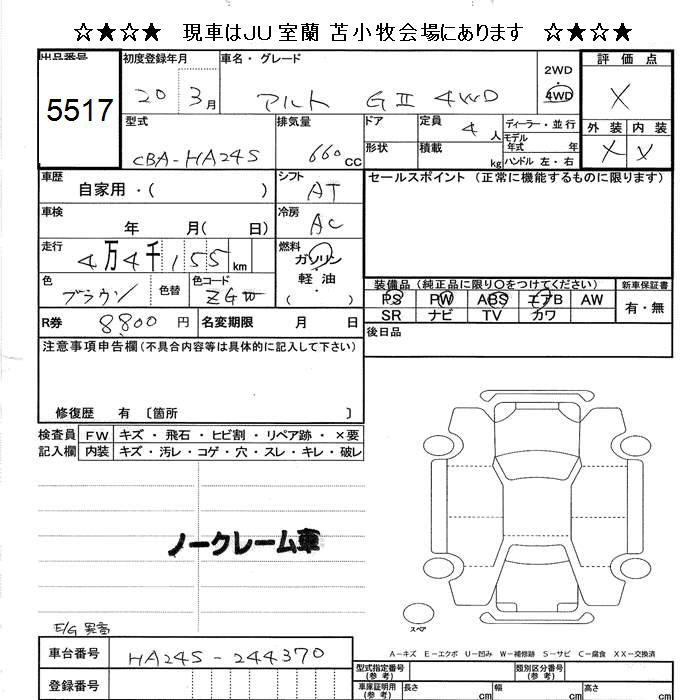 ☆★☆★ 現車はJU室蘭 苫小牧会場にあります ☆★☆★
出品番号 初度登録年月 車名・グレード 2WD 4WD 評価点
5517 20 3月 アルト GⅡ 4WD X
型式 排気量 ドア 定員 4人 ディーラー・並行 外装 内装
CBA-HA24S 660cc 形状 積載 kg モデル年式 年 X X
ハンドル 左・右
車歴 自家用・( ) シフト AT セールスポイント (正常に機能するものに限ります)
車検 年 月( 日) 冷房 AC
走行 4万4千155km 燃料 ガソリン
軽・油
( )
色 ブラウン 色替 色コード ZGW
装備品 (純正品に限り○をつけてください) 新車保証書
PS PW ABS エアB AW 有・無
SR ナビ TV カワ
R券 8,800円 名変期限 月 日 後日品
注意事項申告欄 (不具合内容等は具体的に記入して下さい)
修復歴 有 〔箇所 〕
検査員 FW キズ・飛石・ヒビ割・リペア跡・×要
記入欄 内装 キズ・汚レ・コゲ・穴・スレ・キレ・破レ
ノークレーム車
E/G 異音
スペア
A-キズ E-エクボ U-凹み W-補修跡 S-サビ C-腐食 XX-交換済
車台番号 HA24S-244370 型式指定番号 (参考) 類別区分番号 (参考)
登録番号 車庫証明用 (参考) 長さ cm 幅 cm 高さ cm